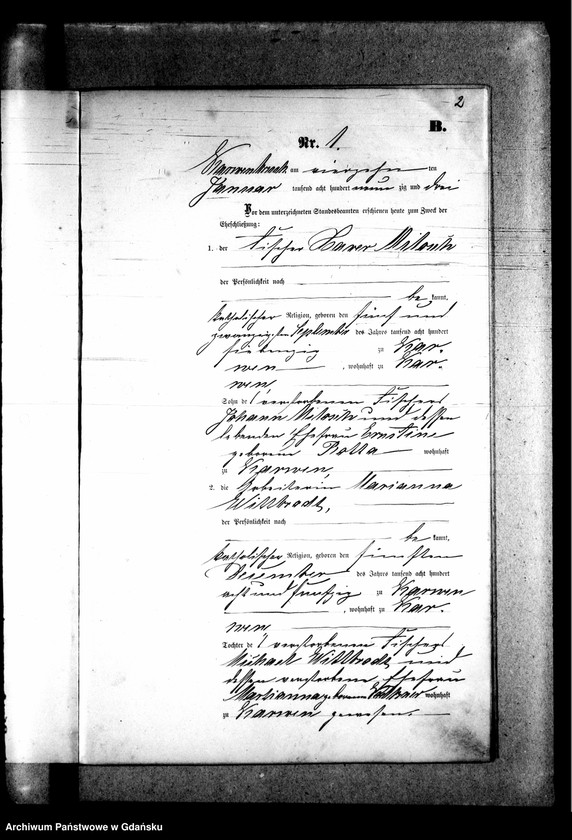 2
B.
Nr. 1.
Karwenbruch am vierzehn ten
Januar tausend acht hundert neun zig und drei
Vor dem unterzeichneten Standesbeamten erschienen heute zum Zweck der
Eheschließung:
1. der Fischer Xaver
der Persönlichkeit nach
be kannt,
katholischer Religion, geboren den fünf und
zwanzigsten September des Jahres tausend acht hundert
siebenzig zu Kar-
wen, wohnhaft zu Kar-
wen,
Sohn des verstorbenen Fischers
Johann und dessen
lebenden Ehefrau Ernstine
geborene wohnhaft
zu Karwen,
2. die Arbeiterin Marianna
Wittbrodt,
der Persönlichkeit nach
be kannt,
katholischer Religion, geboren den fünften
Dezember des Jahres tausend acht hundert
acht und fünfzig zu Karwen
, wohnhaft zu Kar-
wen,
Tochter des verstorbenen Fischers
Michael Wittbrodt und
dessen verstorbene Ehefrau
Marianna geborene wohnhaft
zu Karwen gewesen.
Archiwum Państwowe w Gdańsku